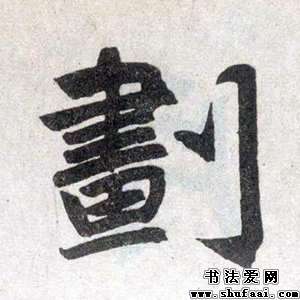 劃
书法爱网
www.shufaai.com